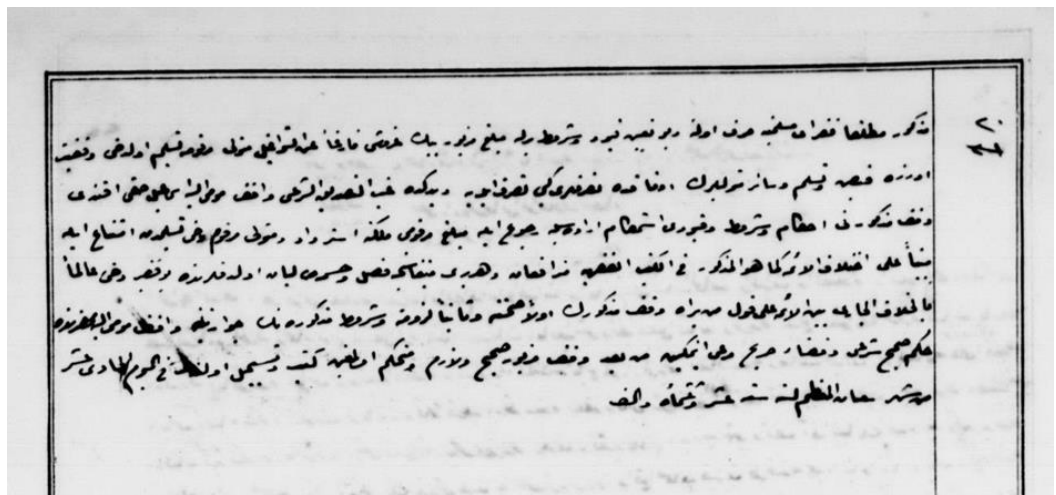 مذكور مطلقا فقراى مسلمينه صرف اولنه ديو تعيين قيود وشروط ايله مبلغ مزبور بيك غروشى فارغا عن الشواغل متولئ مرقومه تسليم اولدخى وقفيت
اوزره قبض وتسلم وسائر متوليلرك اوقافده تصرفلرى كبى تصرف ايدر ديدكده غب التصديق الشرعى واقف مومى اليه حقى افندى
وقف مذكورنى احكام وشروط وقيودين استحكام اراده سيله رجوع ايله مبلغ مرقومى ملكنه استرداد ومتولئ مرقوم دخى تسليمدن امتناع ايله
بناءً على اختلاف الائمة كما هو المذكور فى الكتب الفقهيه مترافعان وهر برى فصل وحسمه طالبان اولدقلرنده وقعر دخى عالماً
بالخلاف الجارى بين الائمة على قول من يراه وقف مذكورك اولا صحتنه وثانيا لزومنه وشروط مذكوره نك جوازينه واقف مومى اليه
حكم صحيح شرعى وقضاء صريح مرعى ايتمكين من بعد وقف مزبور صحيح ولازم ومتحكم اولمغين كتب وتسجيل اولندى فى اليوم الحادى عشر
من شهر شعبان المعظم لسنة ستة عشر وثلثمائة والف